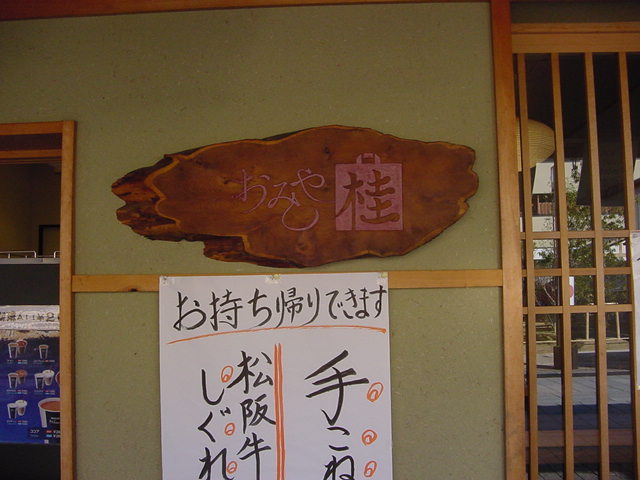 おみや
桂
お持ち帰りできます
手こね
松阪牛
しぐれ